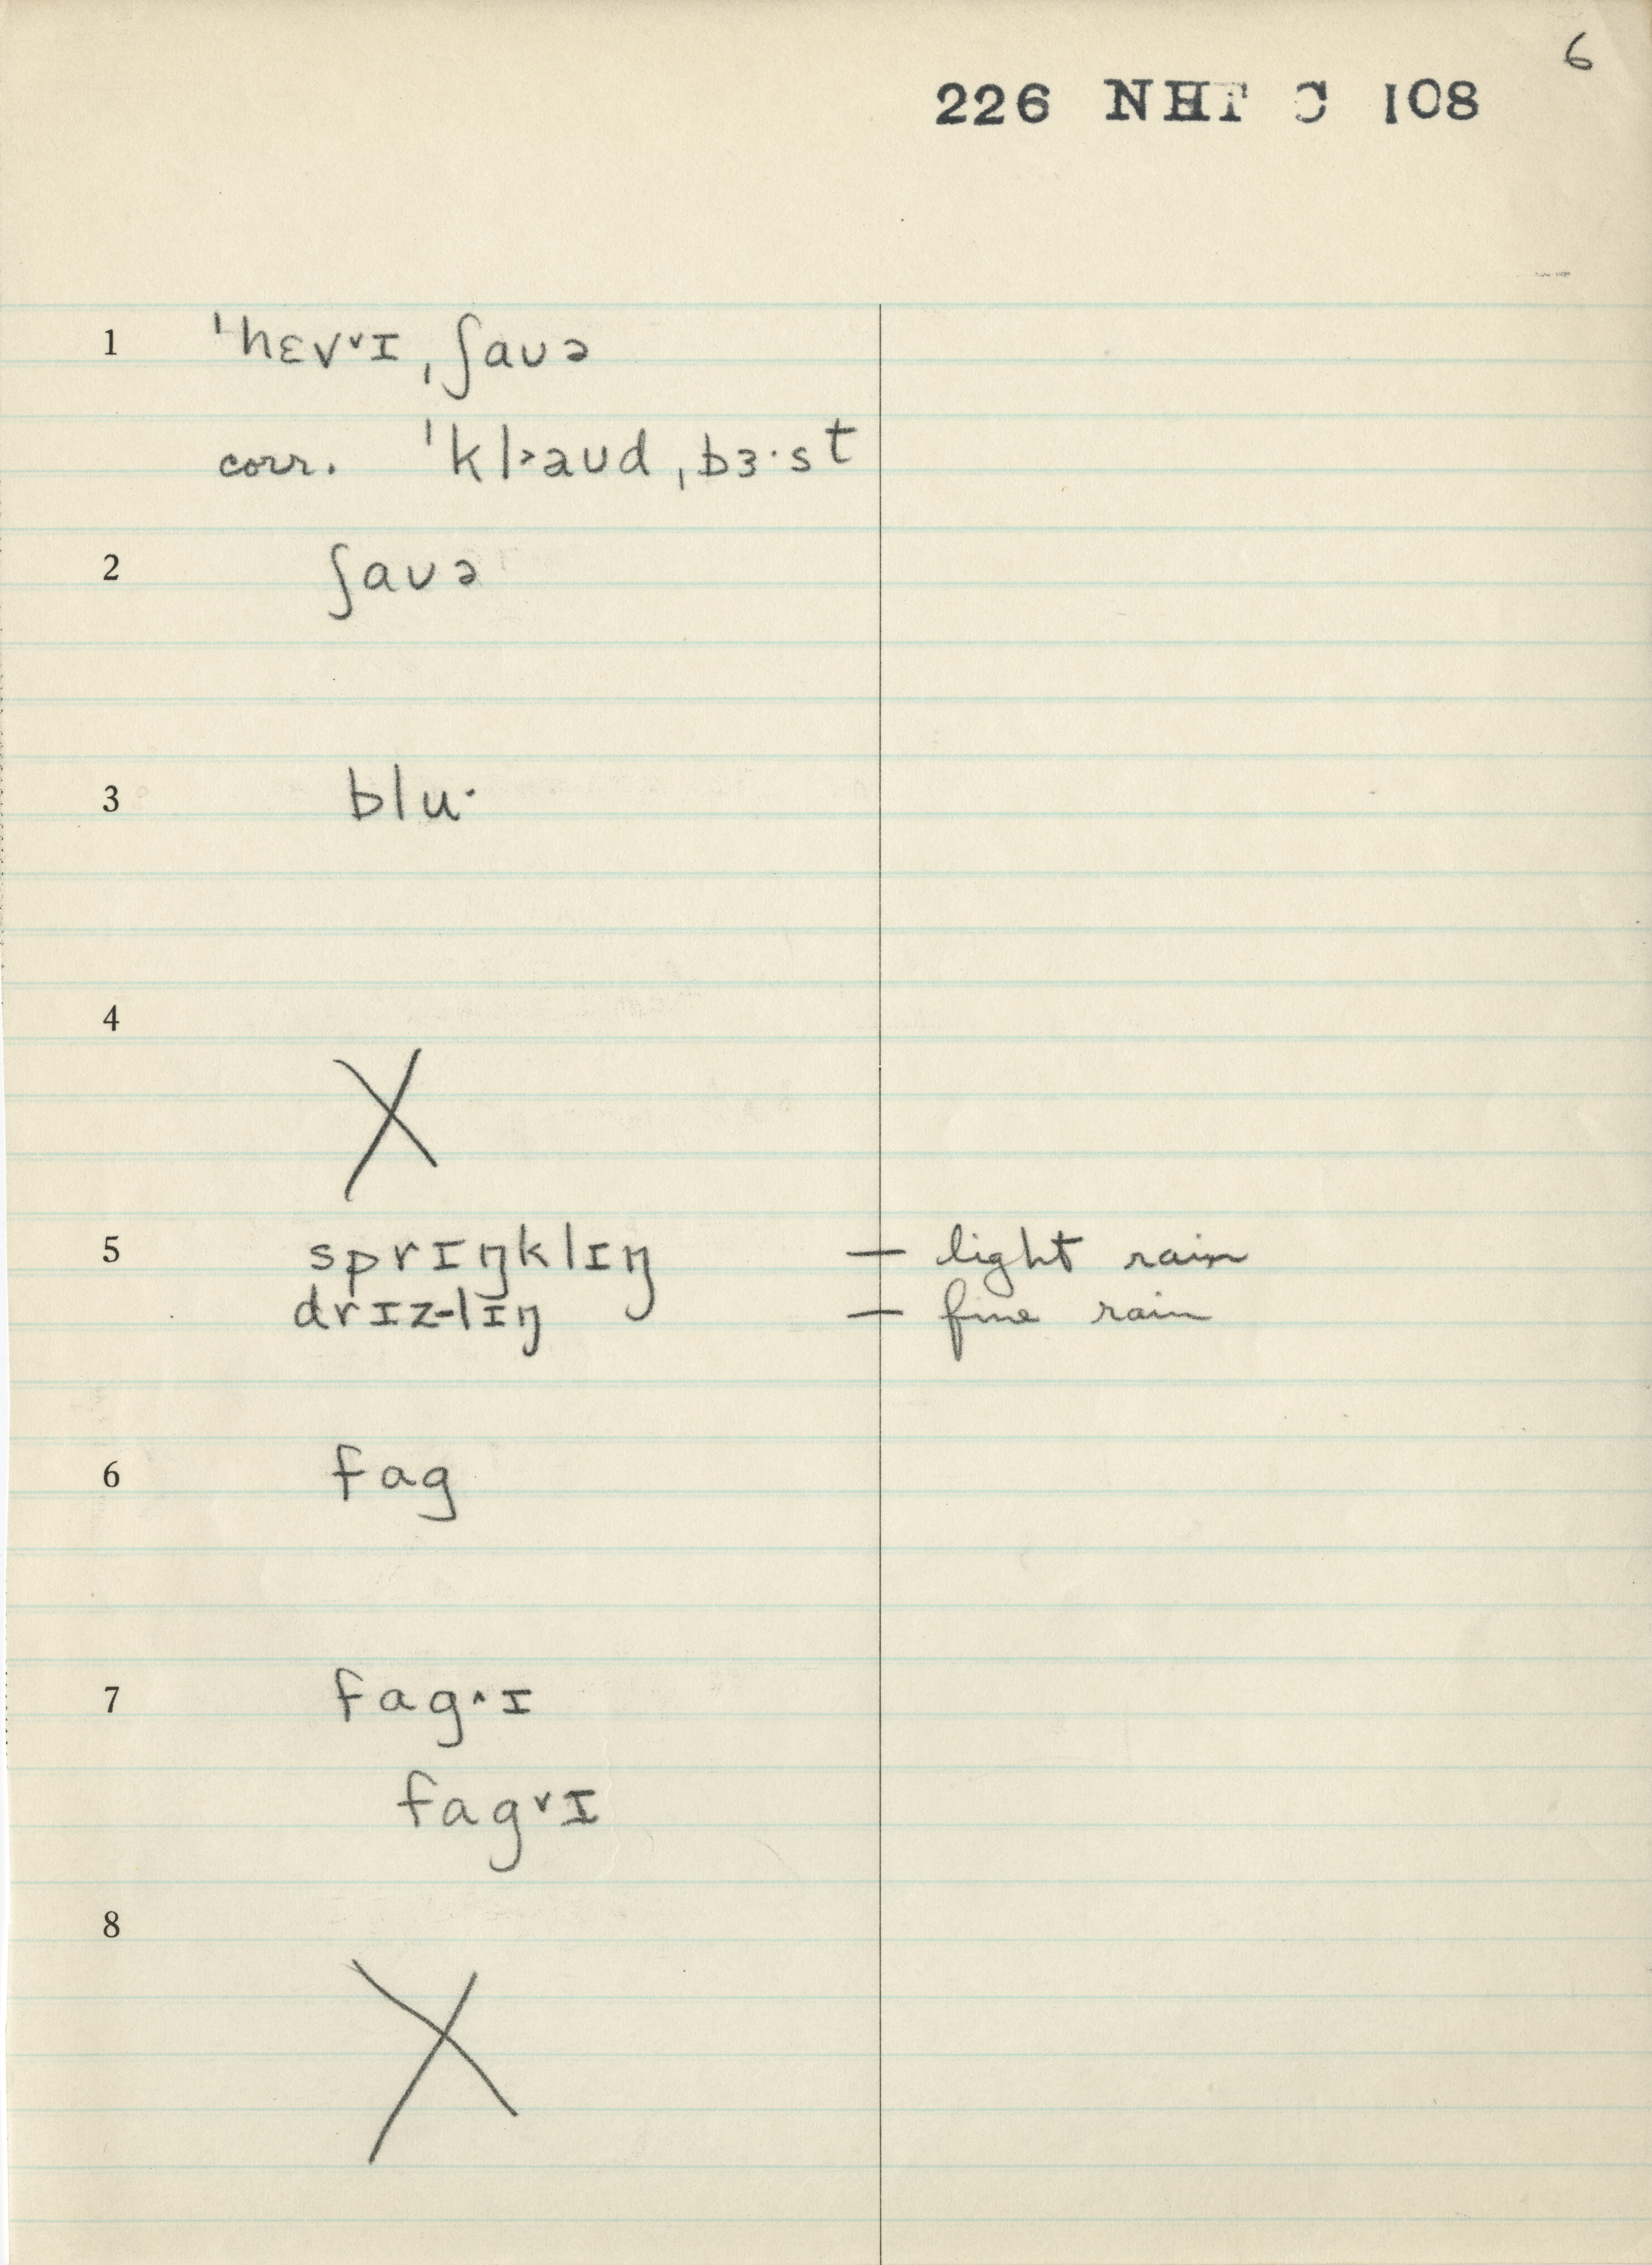 6
226 NHT C 108
1 ˈhɛv˅ɪ ˌʃaʊə
corr. ˈkl˃aʊd ˌbɜ·st
2 ʃaʊə
3 blu·
4 X
5 sprɪŋklɪŋ — light rain
drɪz-lɪŋ — fine rain
6 fag
7 fag˄ɪ
fag˅ɪ
8 X